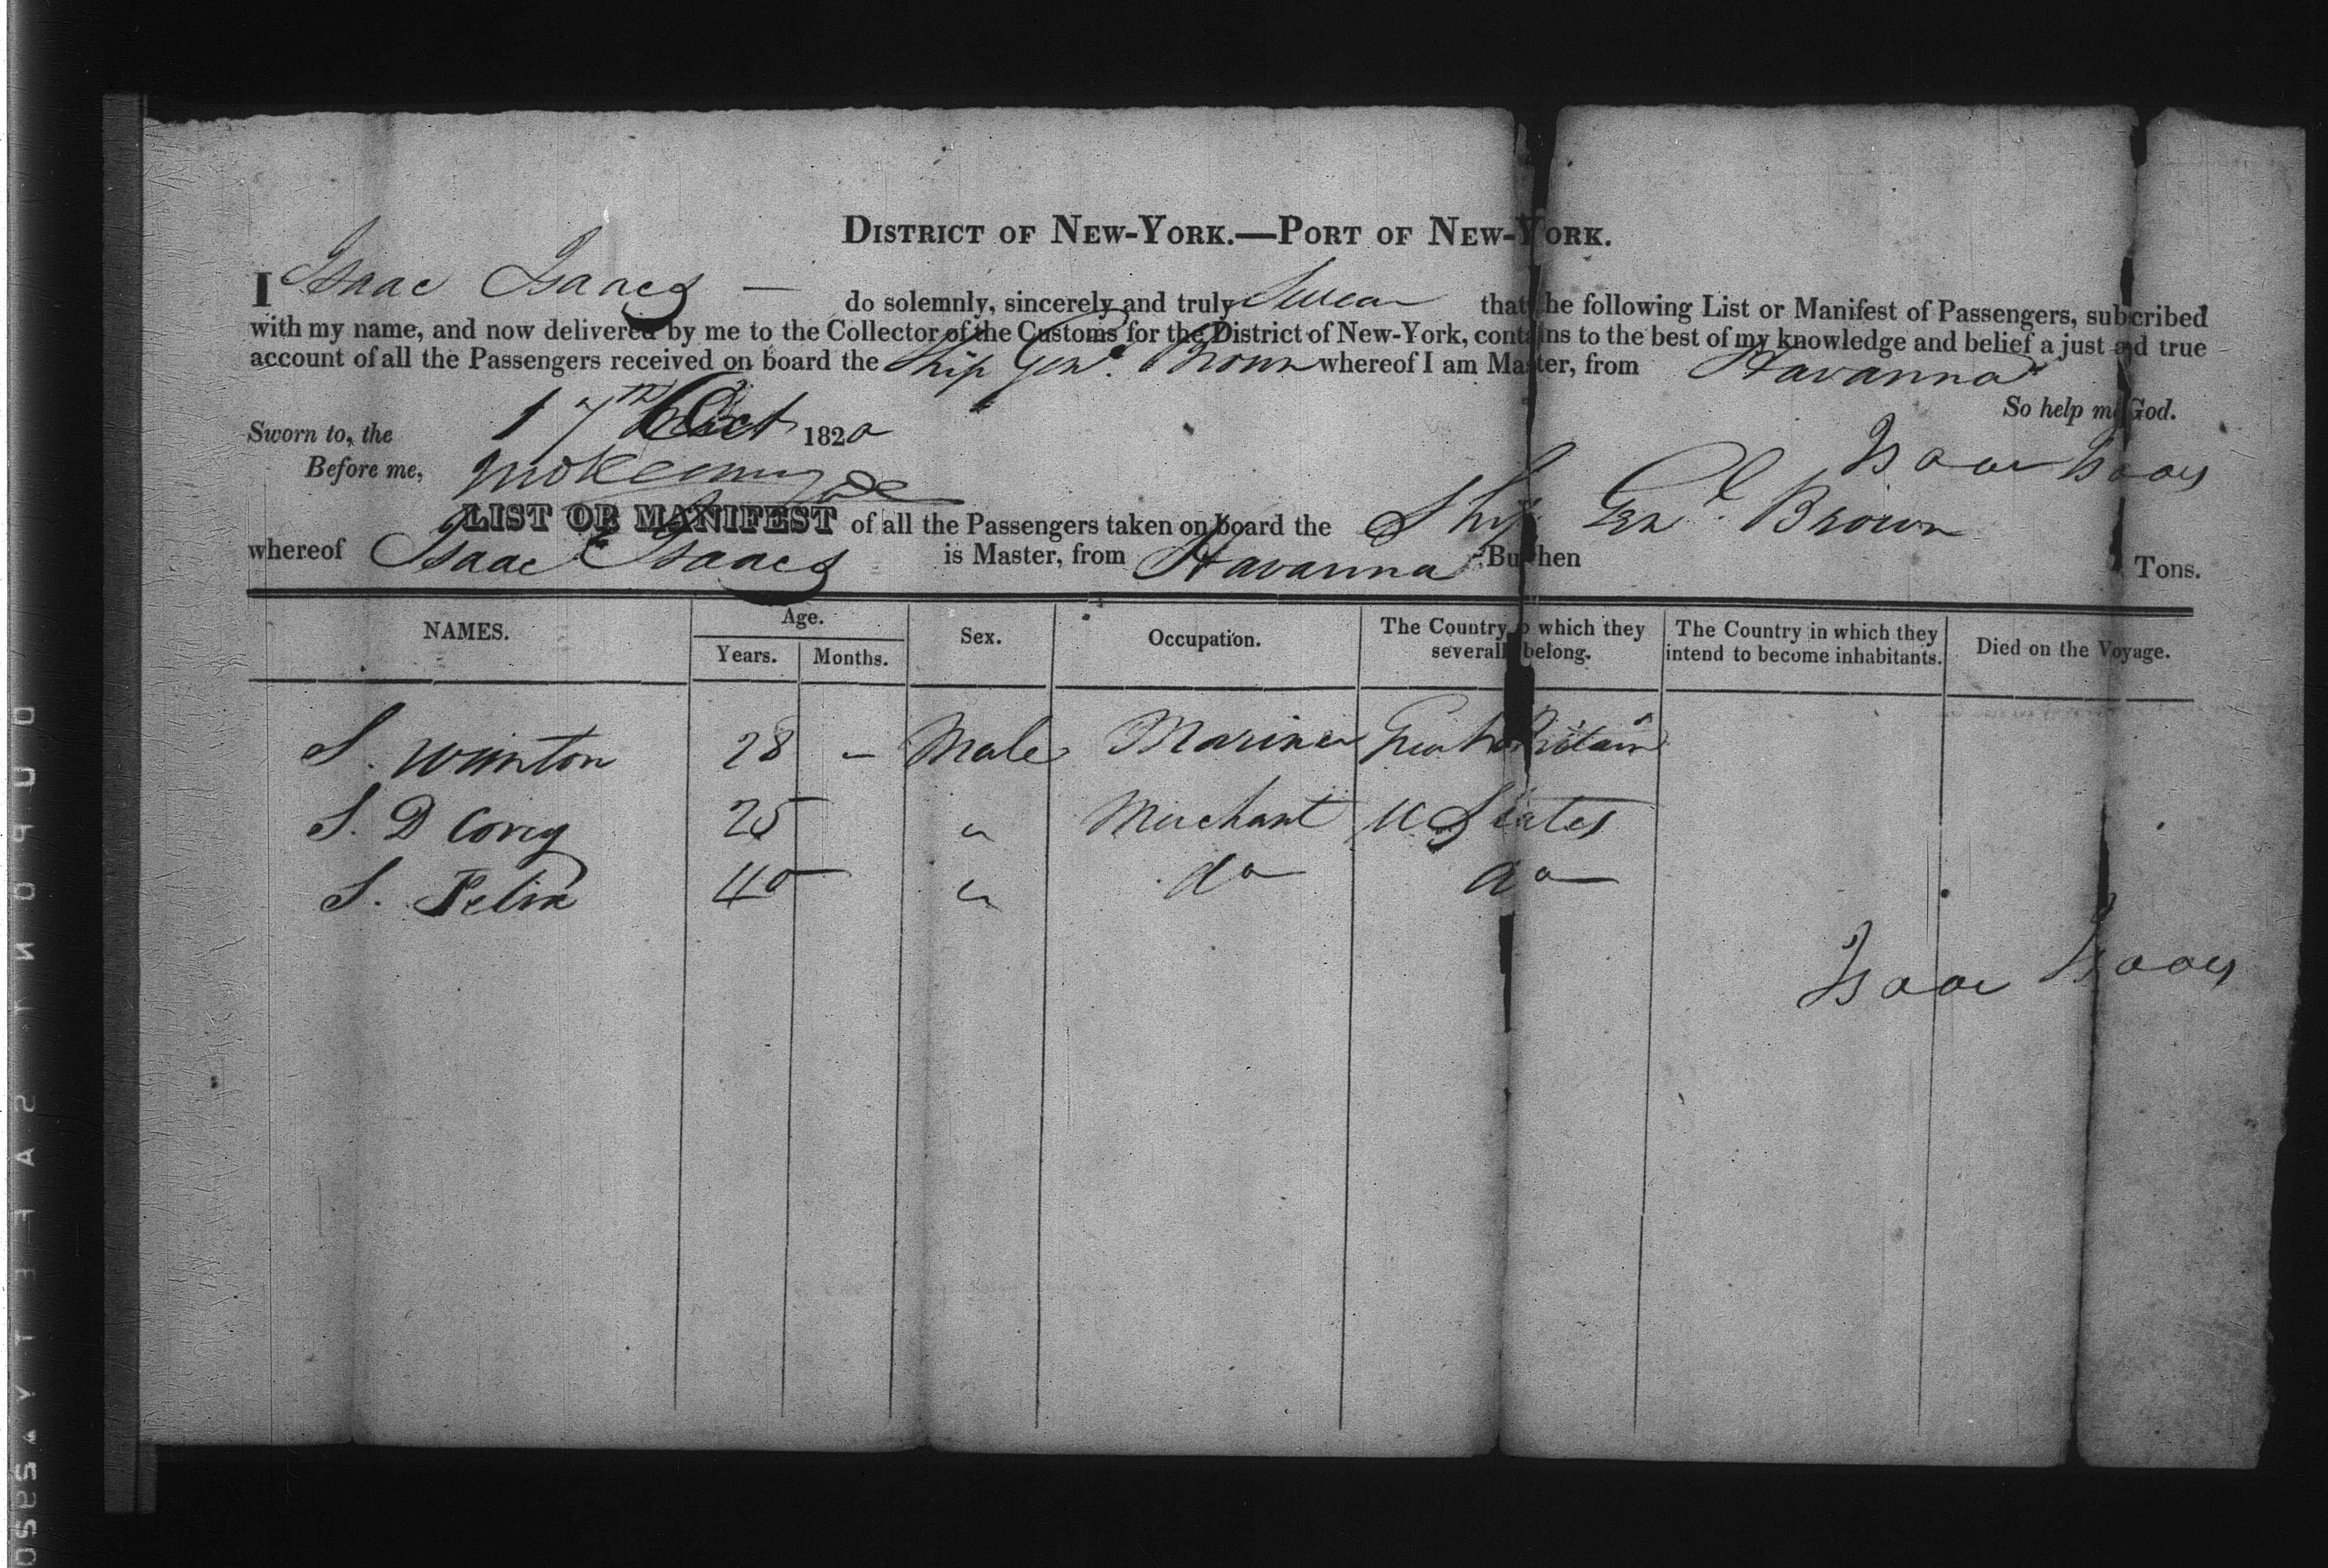 DISTRICT OF NEW-YORK.—PORT OF NEW-YORK.
I Isaac Isaacs — do solemnly, sincerely and truly Swear that the following List or Manifest of Passengers, subscribed
with my name, and now delivered by me to the Collector of the Customs for the District of New-York, contains to the best of my knowledge and belief a just and true
account of all the Passengers received on board the Ship Genl. Brown whereof I am Master, from Havanna
So help me God.
Sworn to, the 17th Oct 1820
Isaac Isaacs
Before me,
LIST OR MANIFEST of all the Passengers taken on board the Ship Genl. Brown
whereof Isaac Isaacs is Master, from Havanna Burthen Tons.
NAMES. Age. Years. Months. Sex. Occupation. The Country to which they severally belong. The Country in which they intend to become inhabitants. Died on the Voyage.
S. Winton 28 – Male Mariner Great Britain
S. D Cory 25 " Merchant U States
S. Felix 40 " do do
Isaac Isaacs